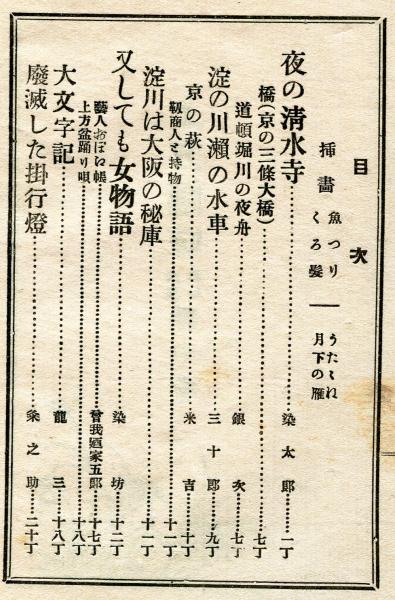 目次
挿畫 魚つり ― うたゝね
くろ髪 月下の雁
夜の清水寺……染太郎……一丁
橋(京の三條大橋)……七丁
道頓堀川の夜舟……銀次……七丁
淀の川瀬の水車……三十郎……九丁
京の萩……米吉……十丁
靱商人と持物……十一丁
淀川は大阪の秘庫……十一丁
又しても女物語……染坊……十二丁
藝人おぼね帳……曾我廼家五郎……十七丁
上方盆踊り唄……十八丁
大文字記……龍三……十八丁
廢滅した掛行燈……粂之助……二十丁